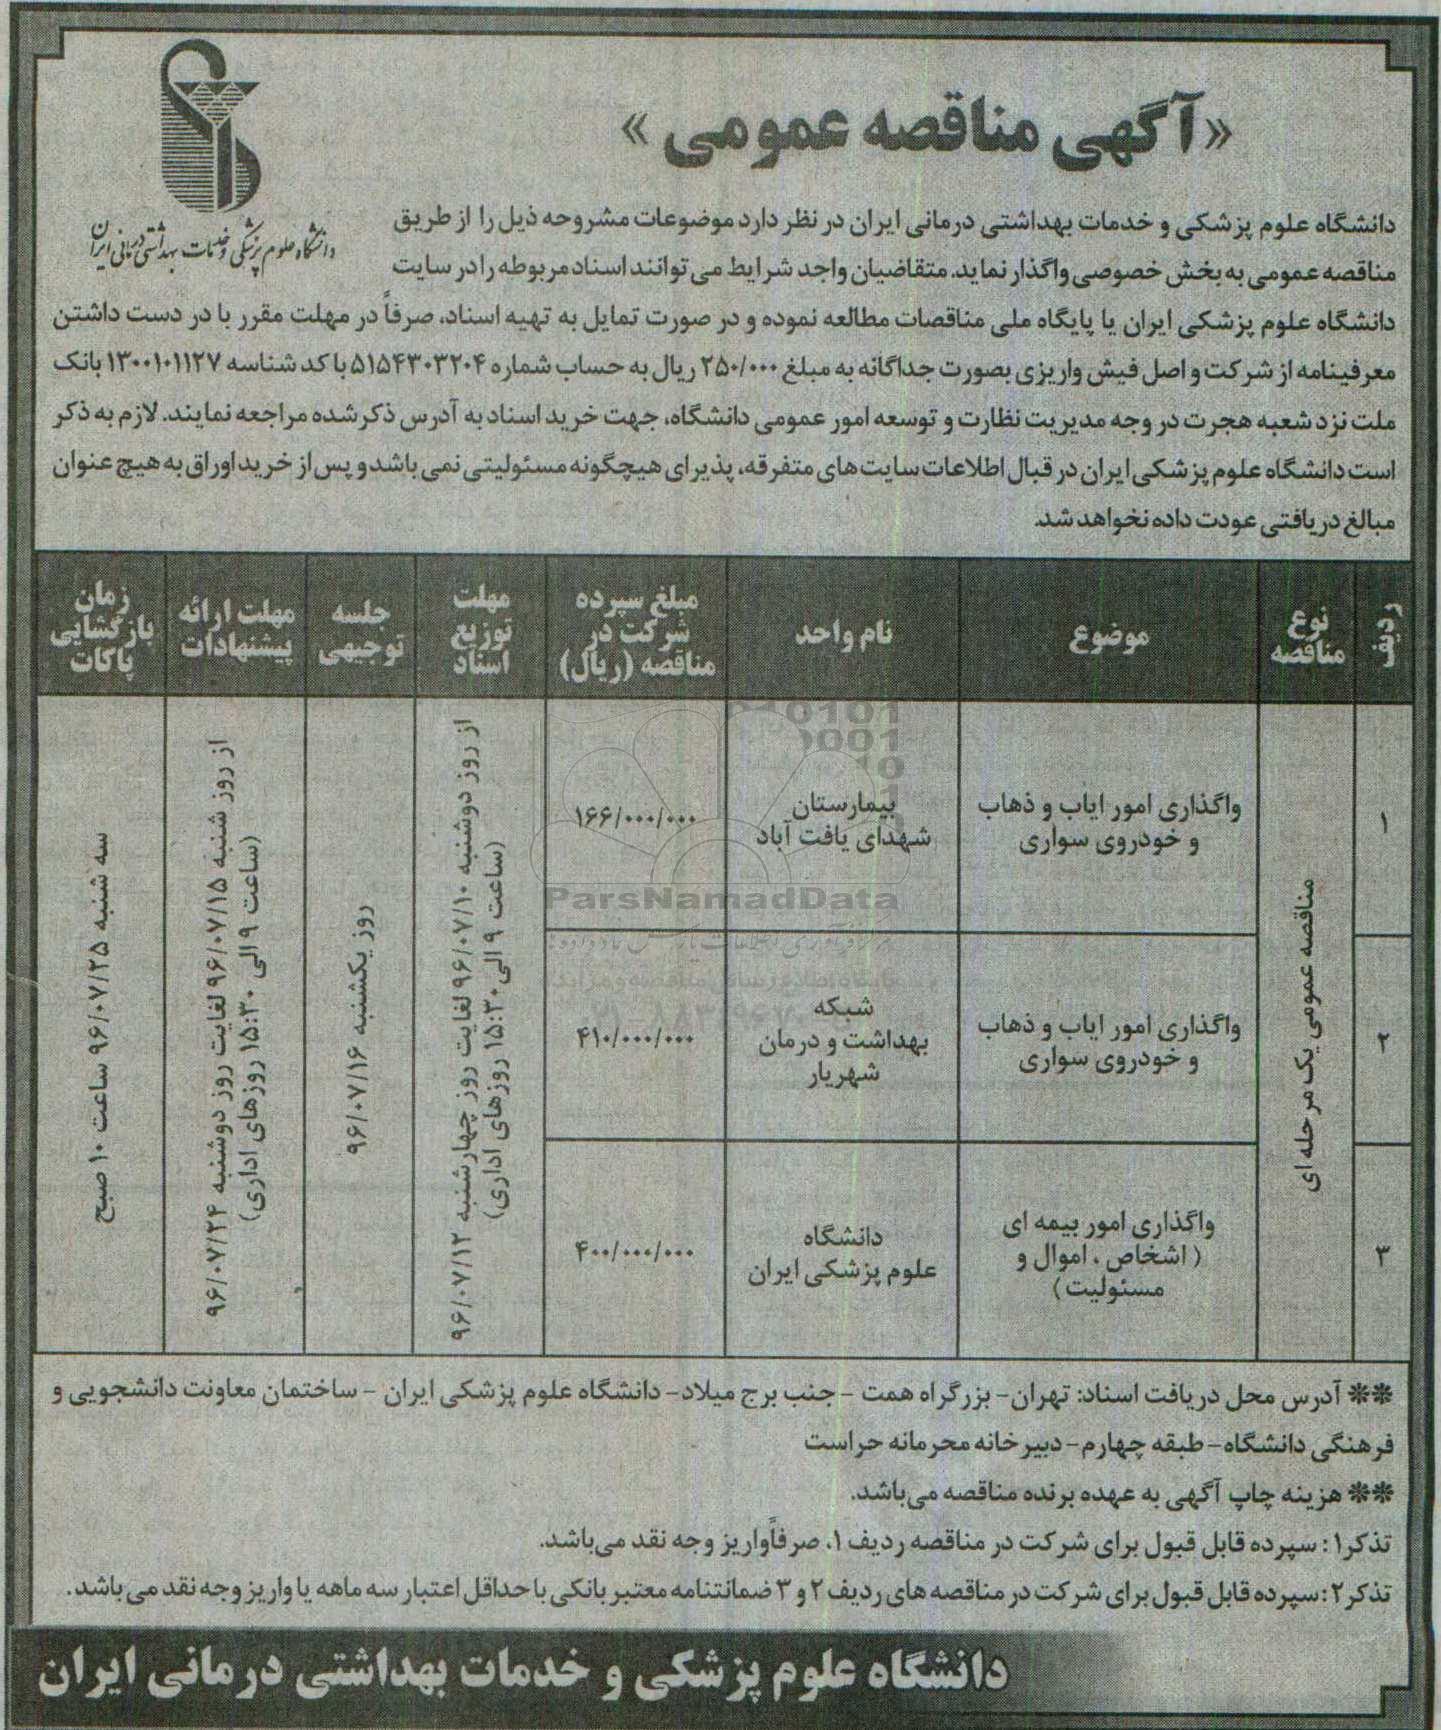 «آگهی مناقصه عمومی»
دانشگاه علوم پزشکی و خدمات بهداشتی درمانی ایران
دانشگاه علوم پزشکی و خدمات بهداشتی درمانی ایران در نظر دارد موضوعات مشروحه ذیل را از طریق
مناقصه عمومی به بخش خصوصی واگذار نماید. متقاضیان واجد شرایط می توانند اسناد مربوطه را در سایت
دانشگاه علوم پزشکی ایران یا پایگاه ملی مناقصات مطالعه نموده و در صورت تمایل به تهیه اسناد، صرفاً در مهلت مقرر با در دست داشتن
معرفینامه از شرکت و اصل فیش واریزی بصورت جداگانه به مبلغ ۲۵۰/۰۰۰ ریال به حساب شماره ۵۱۵۴۳۰۳۲۰۴ با کد شناسه ۱۳۰۰۱۰۱۱۲۷ بانک
ملت نزد شعبه هجرت در وجه مدیریت نظارت و توسعه امور عمومی دانشگاه، جهت خرید اسناد به آدرس ذکر شده مراجعه نمایند. لازم به ذکر
است دانشگاه علوم پزشکی ایران در قبال اطلاعات سایت های متفرقه، پذیرای هیچگونه مسئولیتی نمی باشد و پس از خرید اوراق به هیچ عنوان
مبالغ دریافتی عودت داده نخواهد شد.
ردیف
نوع
مناقصه
موضوع
نام واحد
مبلغ سپرده
شرکت در
مناقصه (ریال)
مهلت
توزیع
اسناد
جلسه
توجیهی
مهلت ارائه
پیشنهادات
زمان
بازگشایی
پاکات
۱
مناقصه عمومی یک مرحله ای
واگذاری امور ایاب و ذهاب
و خودروی سواری
بیمارستان
شهدای یافت آباد
۱۶۶/۰۰۰/۰۰۰
از روز دوشنبه ۹۶/۰۷/۱۰ لغایت روز چهارشنبه ۹۶/۰۷/۱۲
(ساعت ۹ الی ۱۵:۳۰ روزهای اداری)
روز یکشنبه ۹۶/۰۷/۱۶
از روز شنبه ۹۶/۰۷/۱۵ لغایت روز دوشنبه ۹۶/۰۷/۲۴
(ساعت ۹ الی ۱۵:۳۰ روزهای اداری)
سه شنبه ۹۶/۰۷/۲۵ ساعت ۱۰ صبح
۲
واگذاری امور ایاب و ذهاب
و خودروی سواری
شبکه
بهداشت و درمان
شهریار
۴۱۰/۰۰۰/۰۰۰
۳
واگذاری امور بیمه ای
(اشخاص، اموال و
مسئولیت)
دانشگاه
علوم پزشکی ایران
۴۰۰/۰۰۰/۰۰۰
ParsNamadData
** آدرس محل دریافت اسناد: تهران- بزرگراه همت - جنب برج میلاد- دانشگاه علوم پزشکی ایران - ساختمان معاونت دانشجویی و
فرهنگی دانشگاه- طبقه چهارم- دبیرخانه محرمانه حراست
** هزینه چاپ آگهی به عهده برنده مناقصه می‌باشد.
تذکر۱: سپرده قابل قبول برای شرکت در مناقصه ردیف ۱، صرفاً واریز وجه نقد می‌باشد.
تذکر۲: سپرده قابل قبول برای شرکت در مناقصه های ردیف ۲ و ۳ ضمانتنامه معتبر بانکی با حداقل اعتبار سه ماهه یا واریز وجه نقد می باشد.
دانشگاه علوم پزشکی و خدمات بهداشتی درمانی ایران